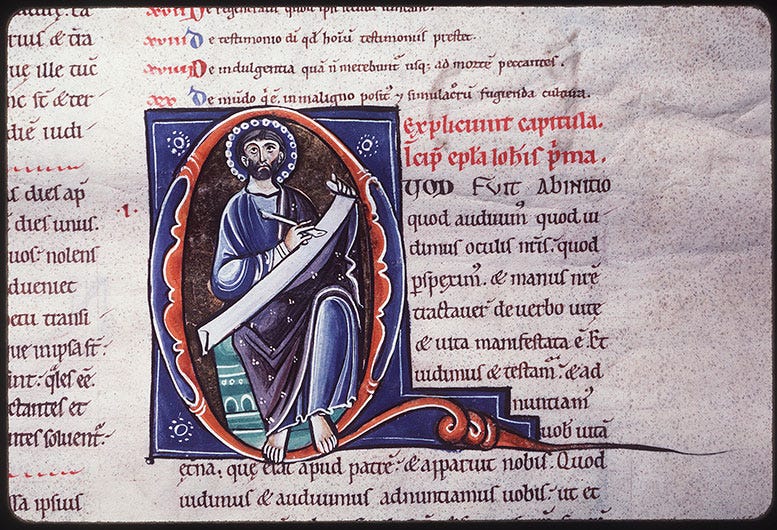 rius & c̄ia
ue ille tūc
nc st̄ & ter
die iudi
s dies ap̄
dies unus.
uos: nolens
dueniet
transi
ue in ipsa st̄:
int: q̄les ēē.
ctantes et
ntes soluent̄:
sa ipsius
xviii De testimonio di qđ hoīū testimoniis prestet.
xviiii De indulgentia quā n̄ merebunt᷑ usq; ad mortē peccantes.
xx De mūdo q̄ ē. in maligno posit᷑ & simulacrū fugienda cultura.
Expliciunt capitula.
Icip̄ ep̄la Iohis p̄ma.
.I.
QUOD FUIT AB INITIO
quod audiuim᷑ quod ui
dimus oculis nr̄is. quod
ꝑspexim᷑. & manus nrē
tractauer̄ de uerbo uite
& uita manifestata ē. Et
uidimus & testam᷑. & ad
nuntiam᷑
uob̄ uitā
etnā. que erat apud patrē: & apparuit nobis. Quod
uidimus & audiuimus adnuntiamus uobis: ut et